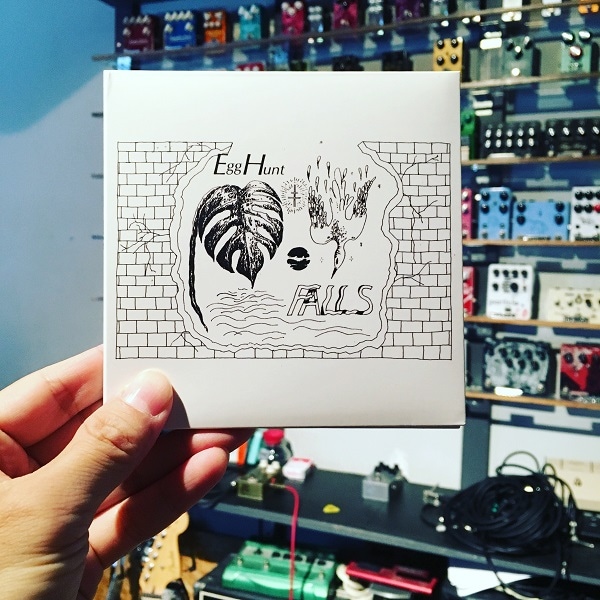 Egg Hunt
FALLS